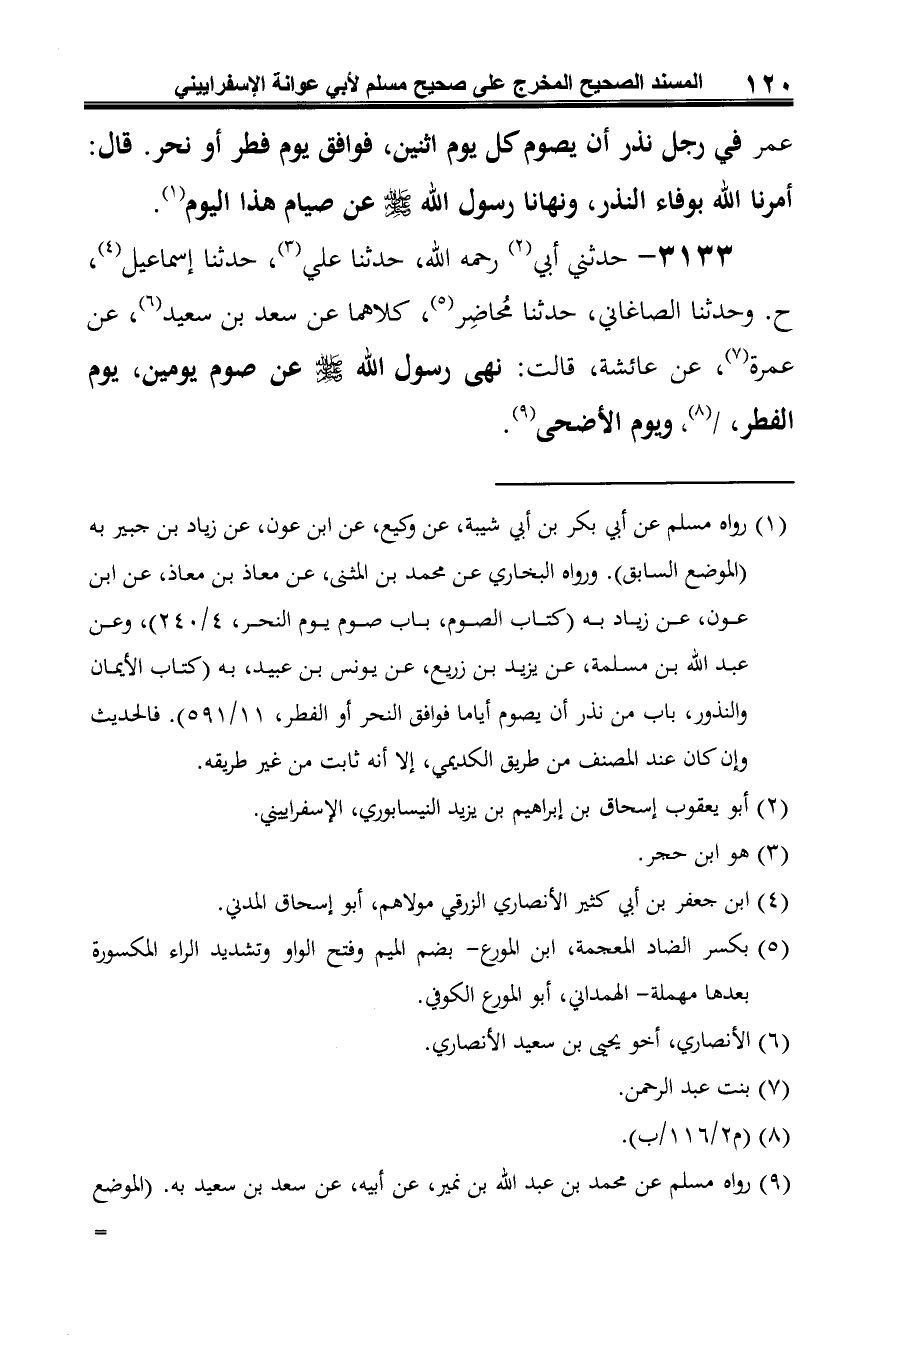 ١٢٠ المسند الصحيح المخرج على صحيح مسلم لأبي عوانة الإسفراييني
عمر في رجل نذر أن يصوم كل يوم اثنين، فوافق يوم فطر أو نحر. قال:
أمرنا الله بوفاء النذر، ونهانا رسول الله ﷺ عن صيام هذا اليوم(١).
٣١٣٣- حدثني أبي(٢) رحمه الله، حدثنا علي(٣)، حدثنا إسماعيل(٤)،
ح. وحدثنا الصاغاني، حدثنا مُحاضِر(٥)، كلاهما عن سعد بن سعيد(٦)، عن
عمرة(٧)، عن عائشة، قالت: نهى رسول الله ﷺ عن صوم يومين، يوم
الفطر، /(٨)، ويوم الأضحى(٩).
(١) رواه مسلم عن أبي بكر بن أبي شيبة، عن وكيع، عن ابن عون، عن زياد بن جبير به
(الموضع السابق). ورواه البخاري عن محمد بن المثنى، عن معاذ بن معاذ، عن ابن
عون، عن زياد به (كتاب الصوم، باب صوم يوم النحر، ٢٤٠/٤)، وعن
عبد الله بن مسلمة، عن يزيد بن زريع، عن يونس بن عبيد، به (كتاب الأيمان
والنذور، باب من نذر أن يصوم أياما فوافق النحر أو الفطر، ٥٩١/١١). فالحديث
وإن كان عند المصنف من طريق الكديمي، إلا أنه ثابت من غير طريقه.
(٢) أبو يعقوب إسحاق بن إبراهيم بن يزيد النيسابوري، الإسفراييني.
(٣) هو ابن حجر.
(٤) ابن جعفر بن أبي كثير الأنصاري الزرقي مولاهم، أبو إسحاق المدني.
(٥) بكسر الضاد المعجمة، ابن المورع- بضم الميم وفتح الواو وتشديد الراء المكسورة
بعدها مهملة- الهمداني، أبو المورع الكوفي.
(٦) الأنصاري، أخو يحيى بن سعيد الأنصاري.
(٧) بنت عبد الرحمن.
(٨) (م٢/١١٦/ب).
(٩) رواه مسلم عن محمد بن عبد الله بن نمير، عن أبيه، عن سعد بن سعيد به. (الموضع
=